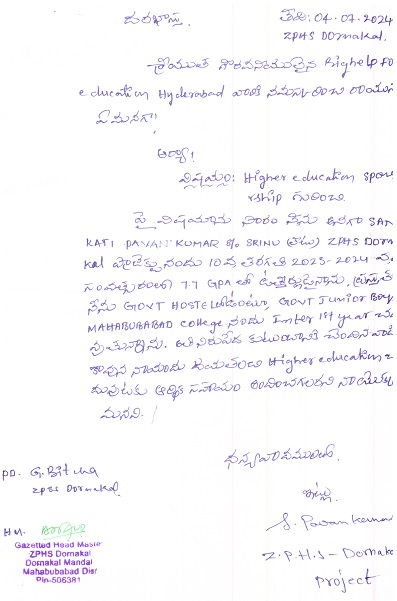 దరఖాస్తు
తేది: 04-07-2024
ZPHS Dornakal.
శ్రీయుత గౌరవనీయులైన Bighelp Fo
education Hyderabad వారికి నమస్కరించి రాయున
ఏమనగా!
ఆర్యా!
విషయం: Higher education spons
rship గురించి.
పై విషయాను సారం నేను అనగా SAN
KATI PAVAN KUMAR S/o SRINU ZPHS Dorn
kal నందు 10వ తరగతి 2023-2024
సంవత్సరంలో 7.7 GPA తో ఉత్తీర్ణుడైనాను,
నేను GOVT HOSTEL GOVT Junior Boys
MAHABUBABAD college నందు Inter 1st year చ
వుతున్నాను. నిరుపేద కుటుంబానికి చెందిన
కావున నాయందు దయతలచి Higher education
దువుటకు ఆర్థిక సహాయం అందించగలరని నా యొక్క
మనవి.
ధన్యవాదములతో
ఇట్లు
S. Pavan Kumar
Z.P.H.S - Dornaka
project
PD. G.
ZPHS Dornakal
H.M.
Gazetted Head Master
ZPHS Dornakal
Dornakal Mandal
Mahabubabad Dist
Pin-506381